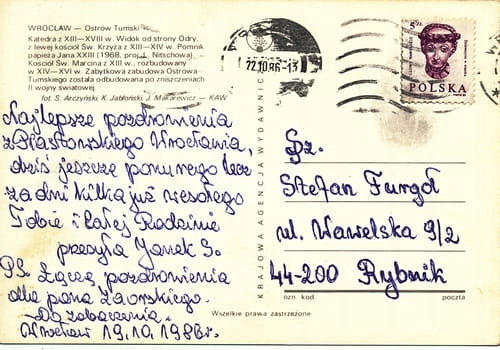 WROCŁAW — Ostrów Tumski
Katedra z XIII—XVIII w. Widok od strony Odry,
z lewej kościół Św. Krzyża z XIII—XIV w. Pomnik
papieża Jana XXIII (1968, proj. L. Nitschowa).
Kościół Św. Marcina z XIII w., rozbudowany
w XIV—XVI w. Zabytkowa zabudowa Ostrowa-
Tumskiego została odbudowana po zniszczeniach
II wojny światowej
fot. S. Arczyński, K. Jabłoński, J. Makarewicz — KAW
Najlepsze pozdrowienia
z Piastowskiego Wrocławia,
dziś jeszcze ponurego lecz
za dni kilka już wesołego
Tobie i Całej Rodzinie
przesyła Janek S.
PS. Łączę pozdrowienia
dla pana Zaorskiego.
Do zobaczenia.
Wrocław 19.10.1986r.
KRAJOWA AGENCJA WYDAWNICZA
22.10.86-13
5 zł
POLSKA
Sz.
Stefan Furgoł
ul. Wawelska 9/2
44-200 Rybnik
ozn. kod. poczta
Wszelkie prawa zastrzeżone